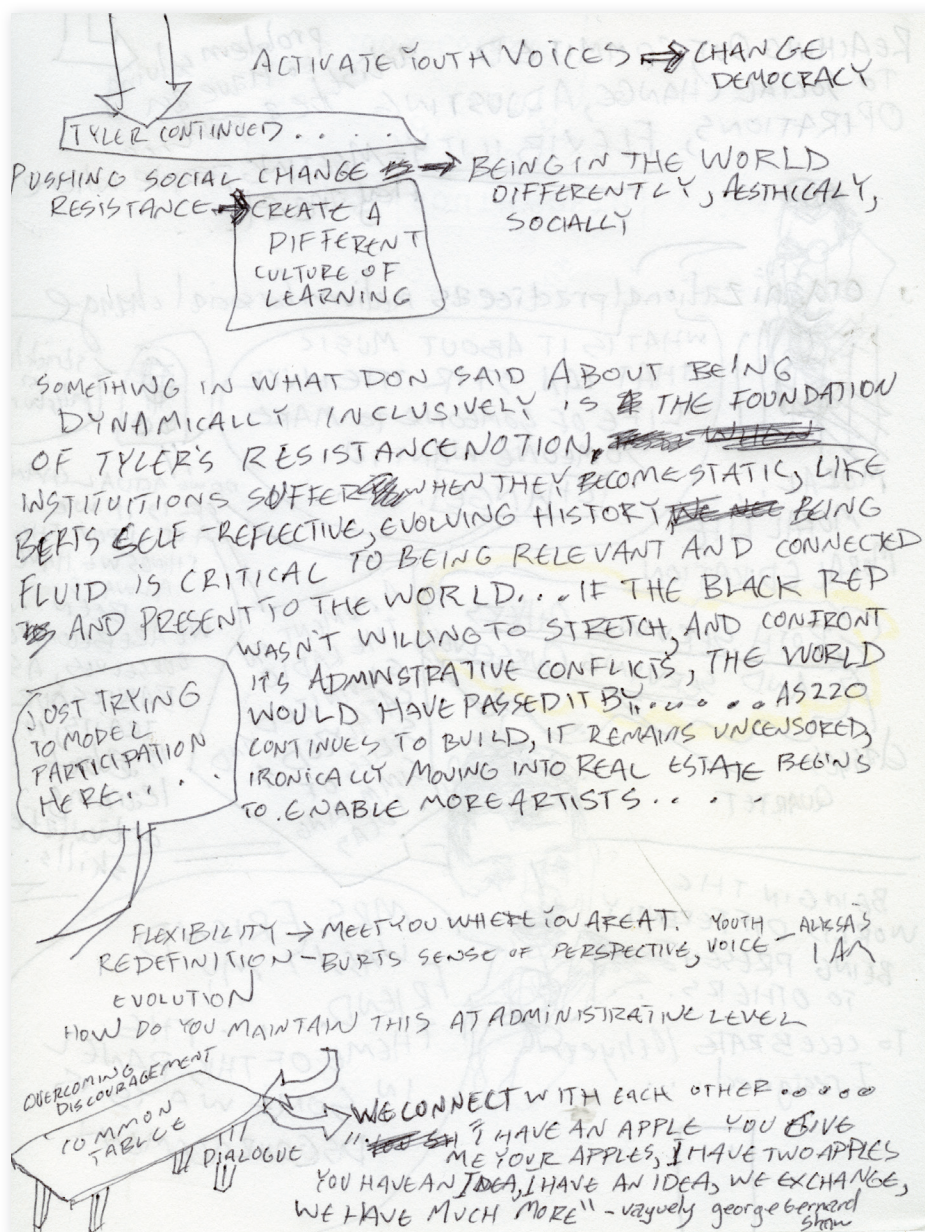 ACTIVATE YOUTH VOICES → CHANGE
DEMOCRACY
TYLER CONTINUED . . . .
PUSHING SOCIAL CHANGE → BEING IN THE WORLD
DIFFERENTLY, AESTHICALY,
SOCIALLY
RESISTANCE → CREATE A
DIFFERENT
CULTURE OF
LEARNING
SOMETHING IN WHAT DON SAID ABOUT BEING
DYNAMICALLY INCLUSIVELY IS THE FOUNDATION
OF TYLER'S RESISTANCE NOTION, WHEN
INSTITUITIONS SUFFER WHEN THEY BECOME STATIC, LIKE
BERTS SELF REFLECTIVE, EVOLVING HISTORY BEING
FLUID IS CRITICAL TO BEING RELEVANT AND CONNECTED
AND PRESENT TO THE WORLD.... IF THE BLACK REP
WASN'T WILLING TO STRETCH, AND CONFRONT
ITS ADMINSTRATIVE CONFLICTS, THE WORLD
WOULD HAVE PASSED IT BY........ AS220
CONTINUES TO BUILD, IT REMAINS UNCENSORED,
IRONICALLY MOVING INTO REAL ESTATE BEGINS
TO ENABLE MORE ARTISTS . . .
JUST TRYING
TO MODEL
PARTICIPATION
HERE. . .
FLEXIBILITY → MEET YOU WHERE YOU ARE AT. YOUTH - ALYSSA'S
REDEFINITION - BURTS SENSE OF PERSPECTIVE, VOICE I AM
EVOLUTION
HOW DO YOU MAINTAIN THIS AT ADMINISTRATIVE LEVEL
OVERCOMING
DISCOURAGEMENT
COMMON
TABLE
DIALOGUE
WE CONNECT WITH EACH OTHER . . . . .
"I HAVE AN APPLE YOU GIVE
ME YOUR APPLES, I HAVE TWO APPLES
YOU HAVE AN IDEA, I HAVE AN IDEA, WE EXCHANGE,
WE HAVE MUCH MORE" - vaguely george bernard
Shaw